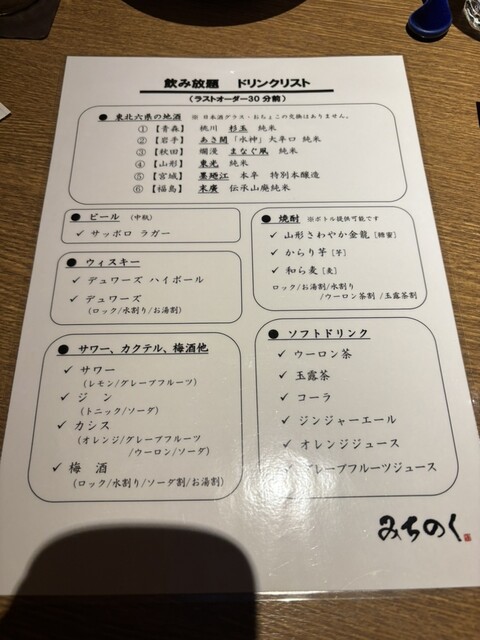 飲み放題 ドリンクリスト
(ラストオーダー30分前)
● 東北六県の地酒 ※ 日本酒グラス・おちょこの交換はありません。
① 【青森】 桃川 杉玉 純米
② 【岩手】 あさ開「水神」大辛口 純米
③ 【秋田】 爛漫 まなぐ凧 純米
④ 【山形】 東光 純米
⑤ 【宮城】 墨廼江 本辛 特別本醸造
⑥ 【福島】 末廣 伝承山廃純米
● ビール (中瓶)
✓ サッポロ ラガー
● ウィスキー
✓ デュワーズ ハイボール
✓ デュワーズ
(ロック/水割り/お湯割)
● サワー、カクテル、梅酒他
✓ サワー
(レモン/グレープフルーツ)
✓ ジン
(トニック/ソーダ)
✓ カシス
(オレンジ/グレープフルーツ
/ウーロン/ソーダ)
✓ 梅酒
(ロック/水割り/ソーダ割/お湯割)
● 焼酎 ※ボトル提供可能です
✓ 山形さわやか金龍 [糖蜜]
✓ からり芋 [芋]
✓ 和ら麦 [麦]
ロック/お湯割/水割り
/ウーロン茶割 /玉露茶割
● ソフトドリンク
✓ ウーロン茶
✓ 玉露茶
✓ コーラ
✓ ジンジャーエール
✓ オレンジジュース
✓ グレープフルーツジュース
みちのく